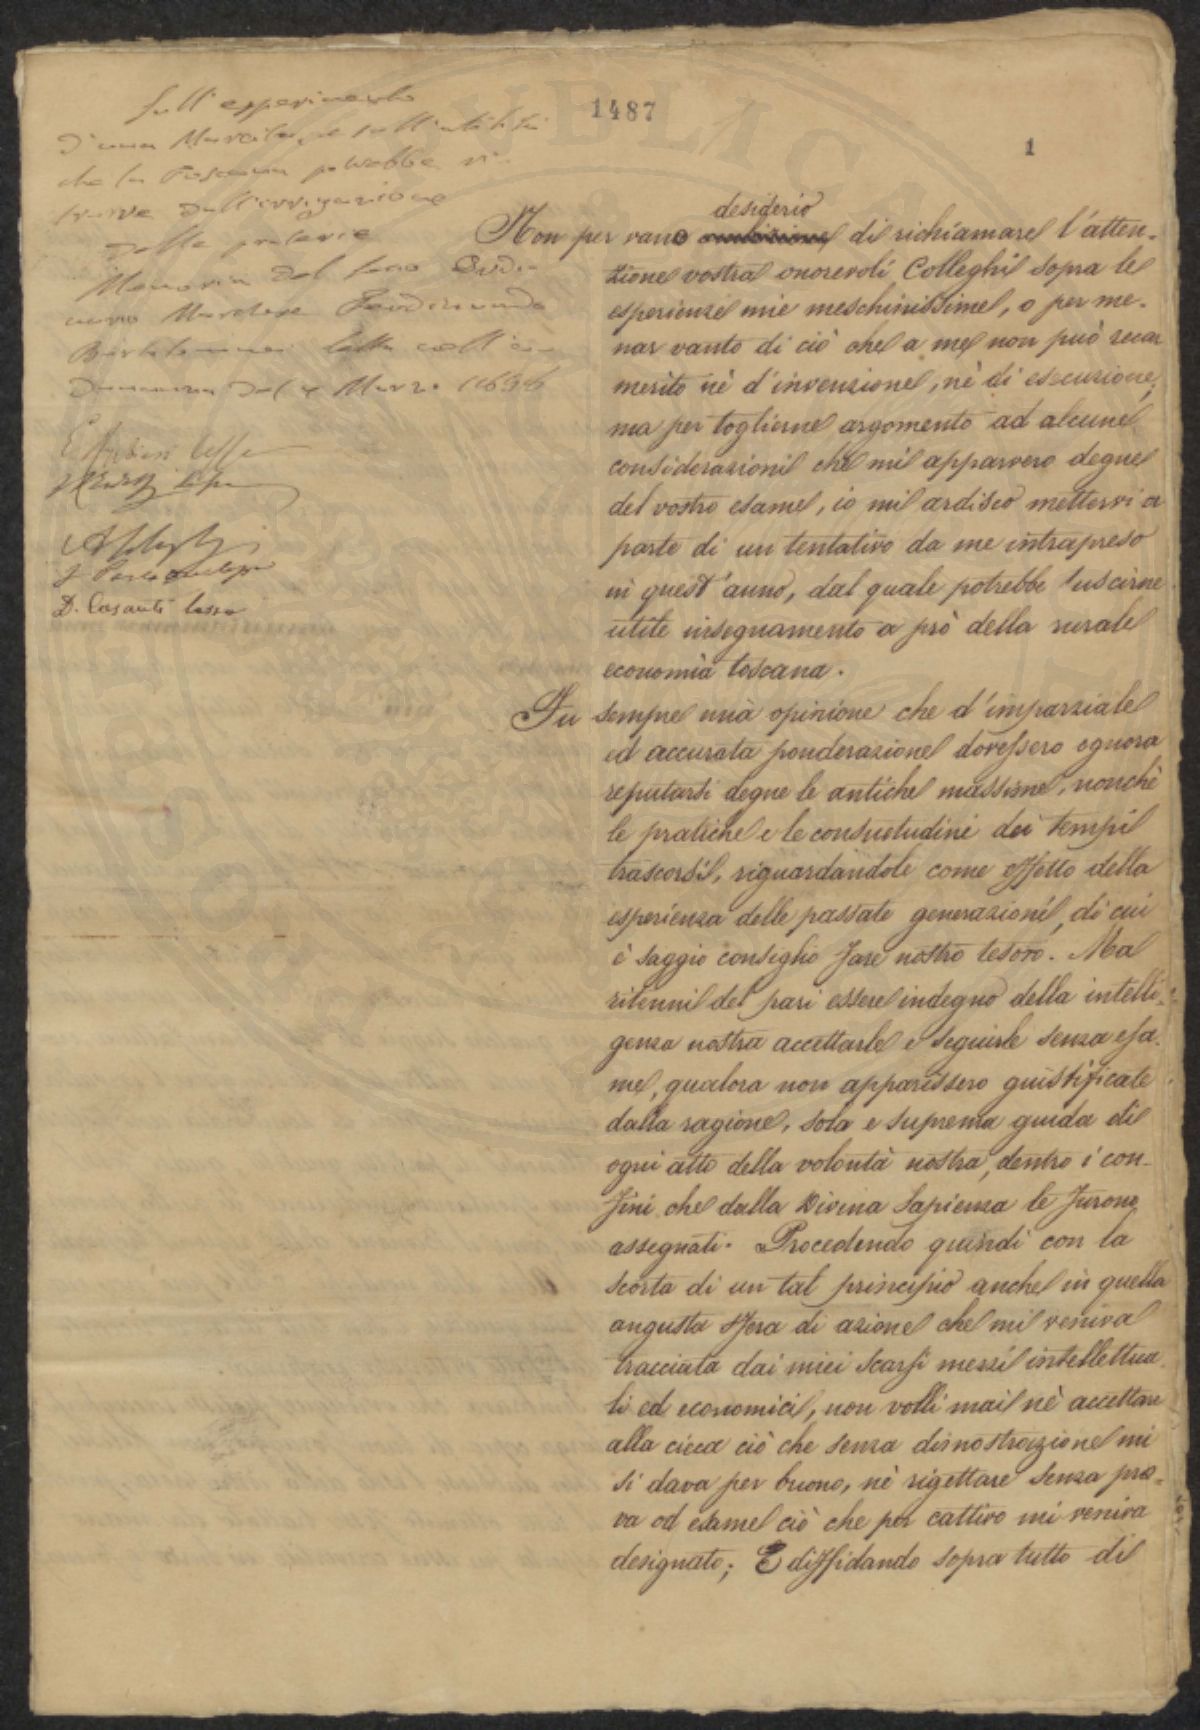 1487
1
Sull'esperimento
d'una Marcita, e sull'utilità
che la Toscana potrebbe ri-
trarre dall'irrigazione
delle praterie
Memoria del Socio Ordi-
nario Marchese Ferdinando
Bartolommei letta nell'a-
dunanza del Marzo
D. Casanti
desiderio
Non per vano ambizione di richiamare l'atten-
zione vostra onorevoli Colleghi sopra le
esperienze mie meschinissime, o per me-
nar vanto di ciò che a me non può recar
merito nè d'invenzione, nè di esecuzione;
ma per togliene argomento ad alcune
considerazioni che mi apparvero degne
del vostro esame, io mi ardisco mettervi a
parte di un tentativo da me intrapreso
in quest'anno, dal quale potrebbe uscirne
utile insegnamento a prò della rurale
economia toscana.
Fu sempre mia opinione che d'imparziale
ed accurata ponderazione dovessero ognora
reputarsi degne le antiche massime, nonchè
le pratiche e le consuetudini dei tempi
trascorsi, riguardandole come effetto della
esperienza delle passate generazioni, di cui
è saggio consiglio fare nostro tesoro. Ma
ritenni del pari essere indegno della intelli-
genza nostra accettarle e seguirle senza esa-
me, qualora non apparissero giustificate
dalla ragione, sola e suprema guida di
ogni atto della volontà nostra, dentro i con-
fini che dalla Divina Sapienza le furono
assegnati. Procedendo quindi con la
scorta di un tal principio anche in quella
angusta sfera di azione che mi veniva
tracciata dai miei scarsi mezzi intellettua-
li ed economici, non volli mai nè accettare
alla cieca ciò che senza dimostrazione mi
si dava per buono, nè rigettare senza pro-
va od esame ciò che per cattivo mi veniva
designato; E diffidando sopra tutto di